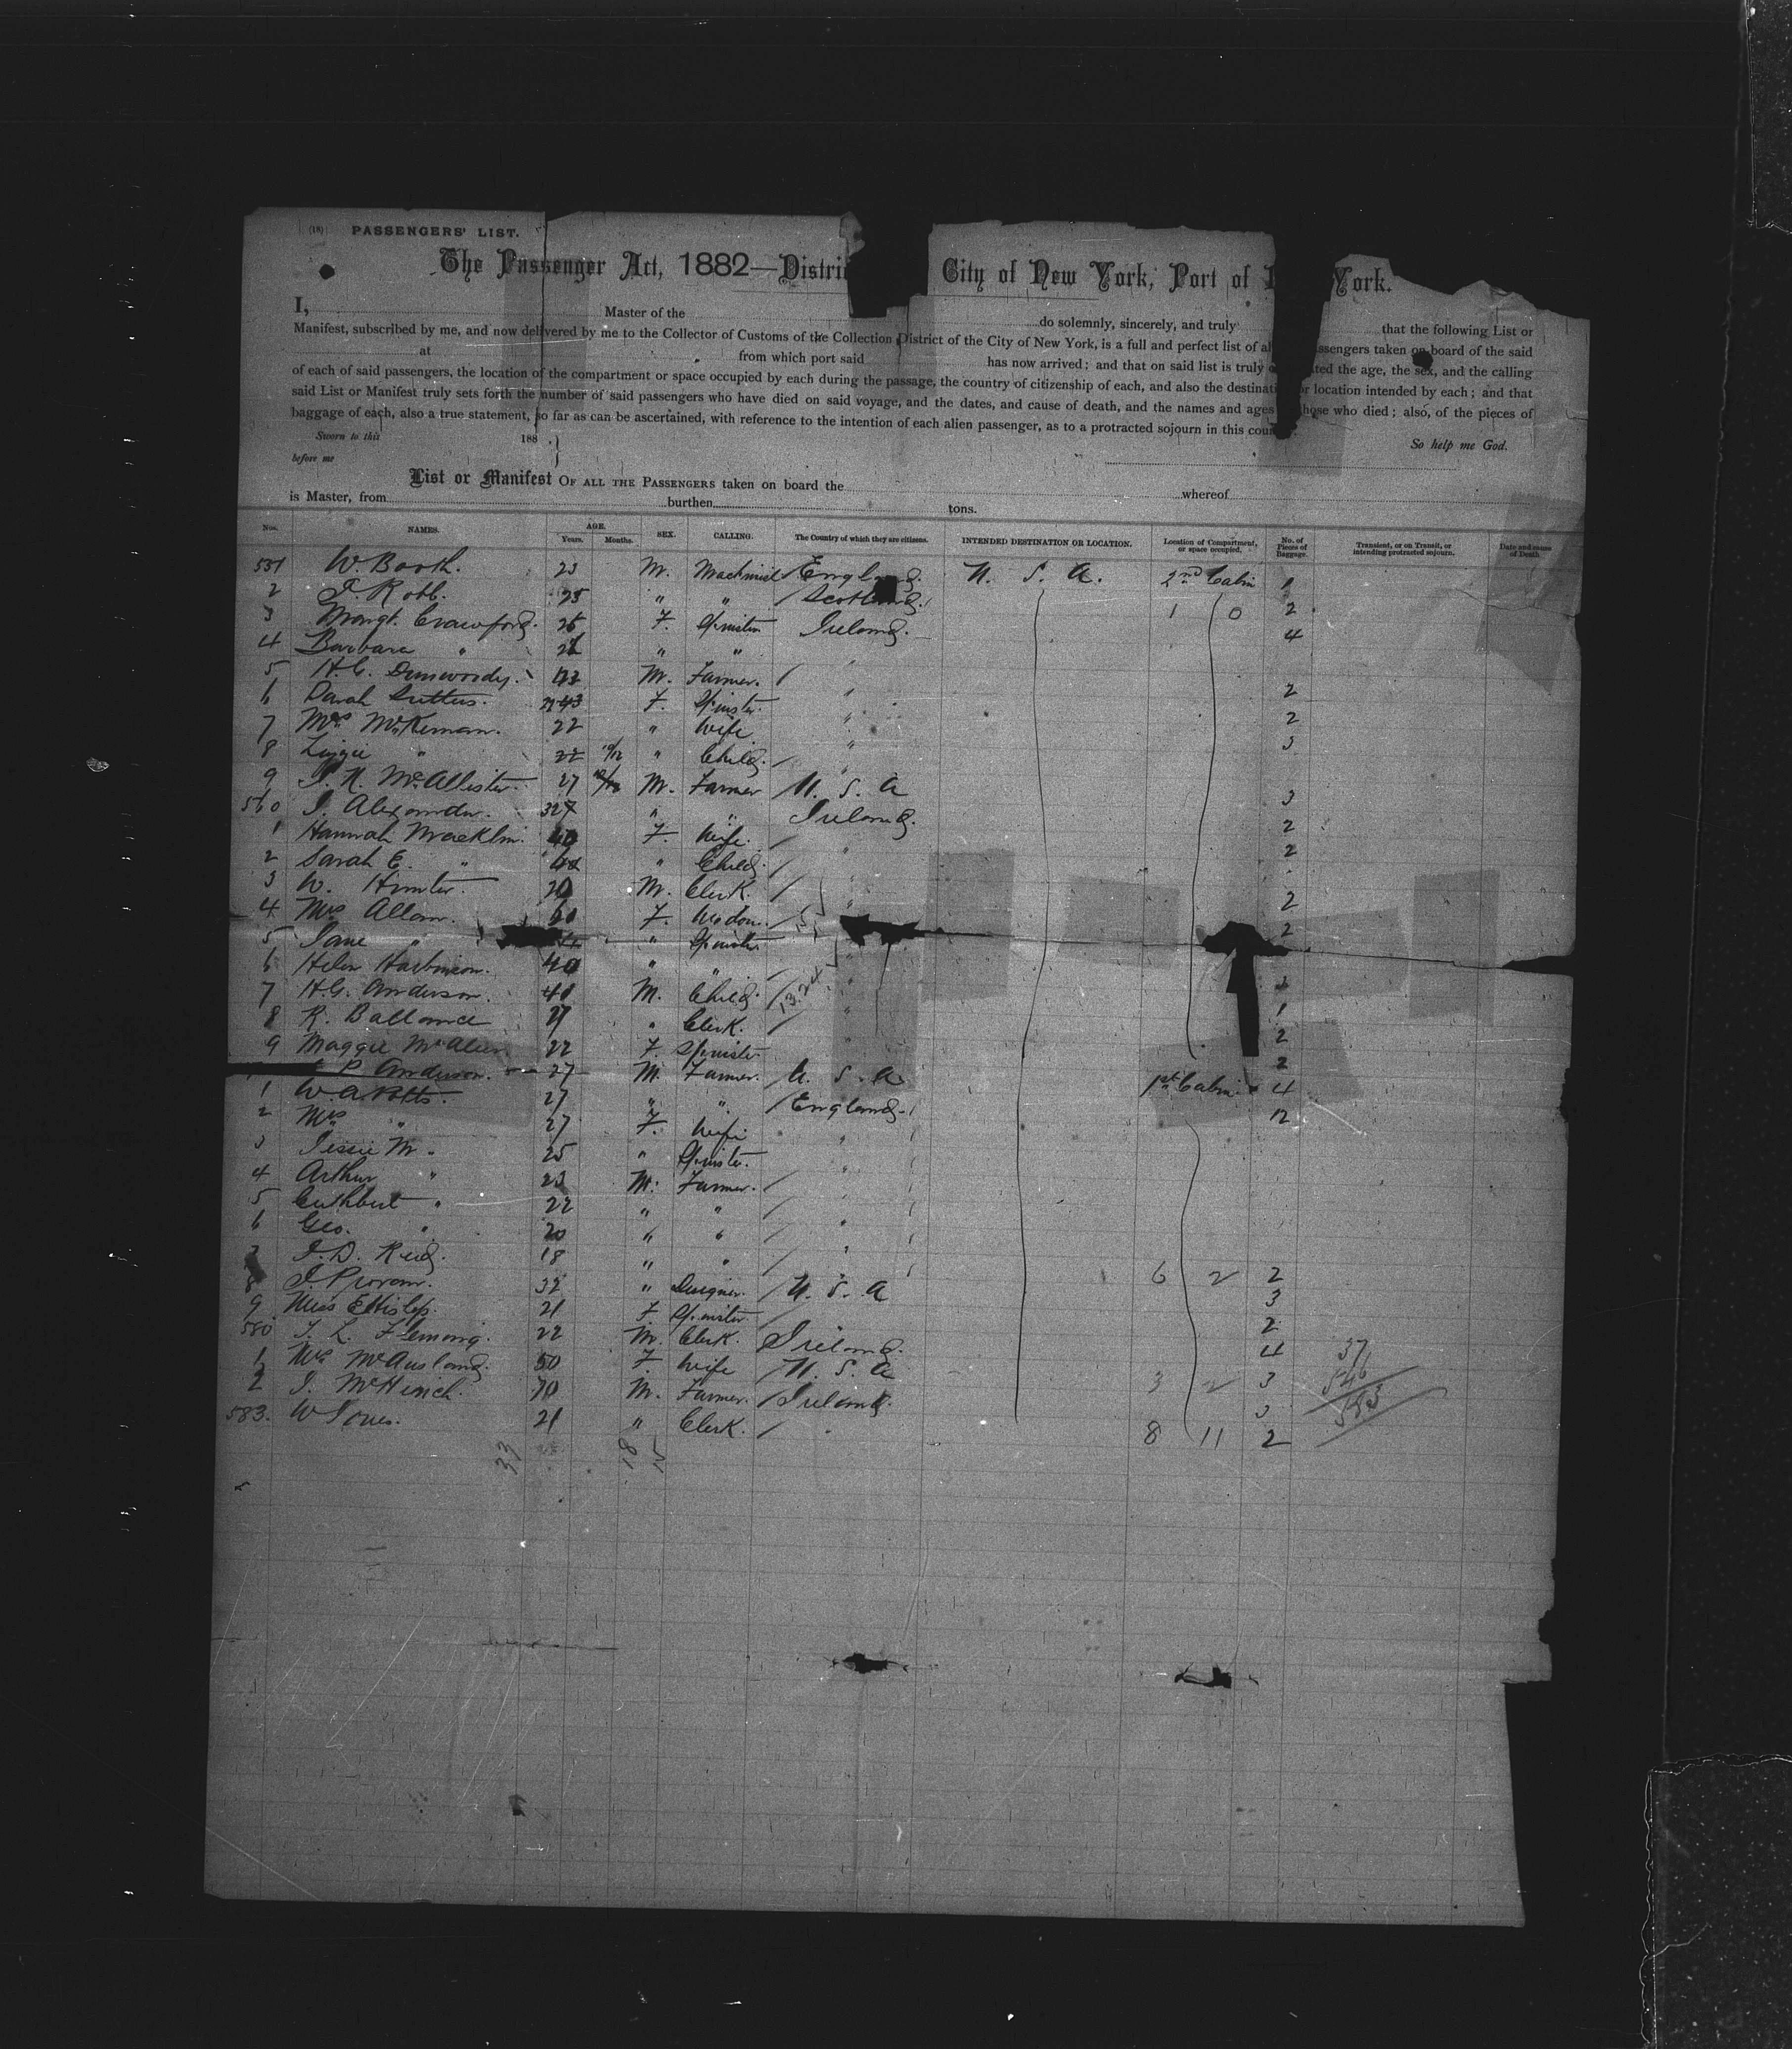 (18) PASSENGERS' LIST.
The Passenger Act, 1882—Distri City of New York, Port of York.
I, Master of the do solemnly, sincerely, and truly that the following List or
Manifest, subscribed by me, and now delivered by me to the Collector of Customs of the Collection District of the City of New York, is a full and perfect list of al ssengers taken on board of the said
at from which port said has now arrived; and that on said list is truly ted the age, the sex, and the calling
of each of said passengers, the location of the compartment or space occupied by each during the passage, the country of citizenship of each, and also the destinati or location intended by each; and that
said List or Manifest truly sets forth the number of said passengers who have died on said voyage, and the dates, and cause of death, and the names and ages those who died; also, of the pieces of
baggage of each, also a true statement, so far as can be ascertained, with reference to the intention of each alien passenger, as to a protracted sojourn in this coun
Sworn to this 188 So help me God.
before me
List or Manifest OF ALL THE PASSENGERS taken on board the whereof
is Master, from burthen tons.
Nos. NAMES. AGE. Years. Months. SEX. CALLING. The Country of which they are citizens. INTENDED DESTINATION OR LOCATION. Location of Compartment, or space occupied. No. of Pieces of Baggage. Transient, or on Transit, or intending protracted sojourn. Date and cause of Death.
551 W. Booth. 23 M. Machinist England. U. S. A. 2nd Cabin 1
2 J. Robb. 25 " " Scotland. 1 0 2
3 Margt. Crawford. 25 F. Spinster Ireland. 4
4 Barbara " " "
5 H.C. Dunwoody. M. Farmer. " 2
6 Sarah 43 F. Spinster. " 2
7 Mrs McKernan. 22 " Wife " 3
8 Lizzie " 10/12 " Child. "
9 J. K. McAllister. 27 M. Farmer U. S. A 3
560 J. Alexander. " " Ireland. 2
1 Hannah Macklin. F. Wife. " 2
2 Sarah E. " " Child. "
3 W. Hunter. M. Clerk. " 2
4 Mrs Allan. F. Widow. " 2
5 Jane " " Spinster
6 Helen Harbinson. 40 " " "
7 H.G. Anderson. M. Child. " 1
8 R. Ballance 27 " Clerk. " 2
9 Maggie 22 F. Spinster 2
P. Anderson. 27 M. Farmer. U. S. A 1st Cabin 4
1 W. A. Potts. 27 " " England. 12
2 Mrs " 27 F. Wife "
3 Jessie M. " 25 " Spinster. "
4 Arthur " 23 M. Farmer.
5 Cuthbert " 22 " "
6 Geo. " 20 " " "
7 J. D. Reid. 18 " " " 6 2 2
8 32 " Designer. U. S. A 3
9 Miss E Hislop. 21 F. Spinster 2
580 T. L. Fleming. 22 M. Clerk. Ireland. 4 37
1 Mrs McAusland. 50 F. Wife U. S. A 3 2 3 546
2 J. McHinch. 70 M. Farmer. Ireland. 3 583
583. W Jones. 21 " Clerk. " 8 11 2
33 18 15